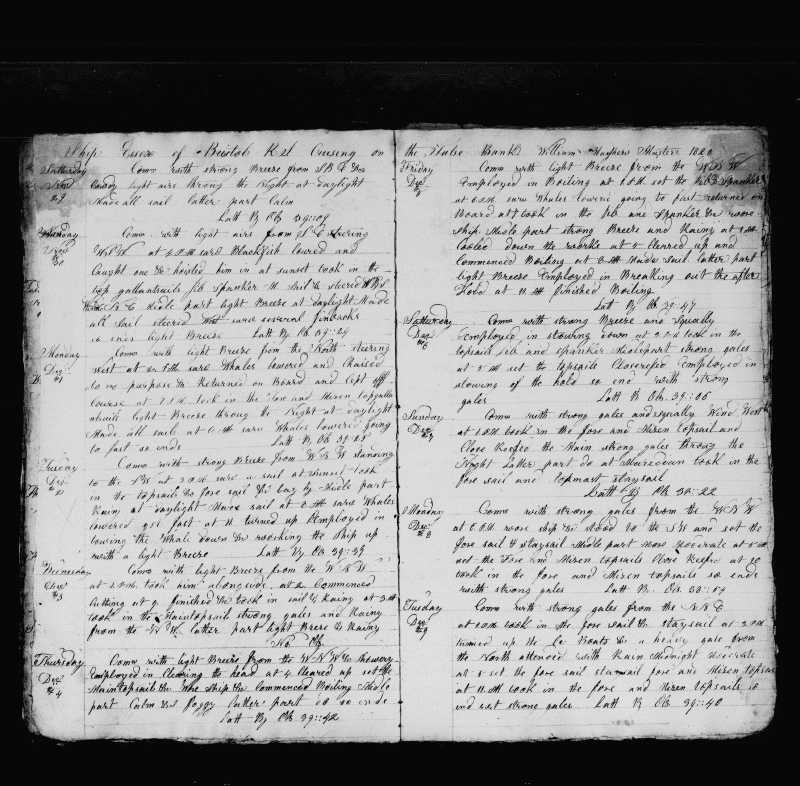 Ship Essex of Bristol R I Cruising on
Satturday Com with strong Breeze from
29 light airs throug the Night at daylight
Made all sail Latter part Calm
Latt By Ob 39::09
Com. with light airs from S E steering
30 at 2 P M saw Blackfish lowred and
Caught one & hoisted him in at sunset took in the
top gallantsails jib Spanker M Sail & steered
Midle part light Breeze at daylight Made
all sail steered West saw several finbacks
so ends light Breeze Latt By Ob 39::24
Monday Com with light Breeze from the North steering
Dec West at saw Whales lowered and Chaised
#1 to no purpose & Returned on Board and Cept off
Course at took in the fore and Mizen topgallantsails light Breeze throug the Night at daylight
Made all sail at saw Whales lowered going
to fast so ends Latt By Ob 39::25
Tuesday Com with strong Breeze from W B W standing
Dec to the at saw a sail at sunset took
#2 in the topsails & fore sail & lay by Midle part
Rainy at daylight Made sail at 8 A M saw Whales
lowered got fast at 11 turned up Employed in
towing the Whale down & working the ship up
with a light Breeze Latt By Ob 39::39
Wednesday Com with light Breeze from the W N W
Dec at took him alongside. at 2 Commenced
#3 Cutting at 9 finished & took in sail & Rainy at
took in the Maintopsail strong gales and Rainy
from the latter part light Breeze & Rainy
No Ob
Thursday Com with light Breeze from the W N W & Showery
Dec Employed in Clearing the head at 4 Cleared up set the
#4 Maintopsail & the Ship & Commenced Boiling Midle
part Calm & foggy Latter part do so ends
Latt By Ob 39::42
the False Banks William Master 1828
Friday Com with light Breeze from the
Dec Employed in Boiling at set the jib & Spanker
5 at saw Whales lowerd going to fast returned on
Board at 7 took in the jib and Spanker & wore
Ship. Midle part strong Breeze and Rainy at
Cooled down the works at 5 Clearred up and
Commenced Boiling at 8 A M Made sail latter part
light Breeze Employed in Breaking out the after
Hold at 11 A M finished Boiling
Latt By Ob 39::47
Satturday Com with strong Breeze and Squally
Dec Employed in stowing down at took in the
#6 topsail jib and spanker Midlepart strong gales
at set the topsails Closereefed Employed in
stowing of the hold so end with strong
gales Latt By Ob. 39::06
Sunday Com with strong gales and squally Wind West
Dec at took in the fore and Mizen topsail and
#7 Close Reefed the Main strong gales throug the
Night Latter part do at Maredian took in the
fore sail and topmast staysail
Latt By Ob 38::22
Monday Com with strong gales from the
Dec at 6 P M wore ship & stood to the S W and set the
#8 fore sail & staysail Midle part More Moderate at 5 A M
set the Fore and Mizen topsails Close Reefed at 10
took in the fore and Mizen topsails so ends
with strong gales Latt By Ob. 38::54
Tuesday Com with strong gales from the N N E
Dec at took in the fore sail & staysail at
#9 turned up the Boats & a heavy gale from
the North attended with Rain Midnight Moderate
at 5 set the foresail staysail fore and Mizen topsails
at 11 A M took in the fore and Mizen topsails so
end with strong gales Latt By Ob 39::40